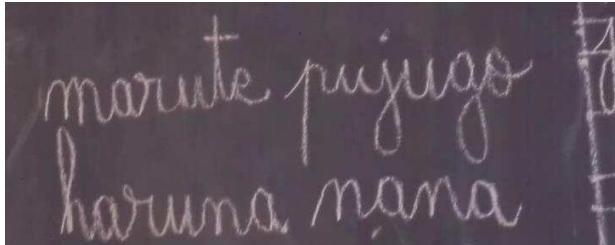 marute pujugo
haruna nạna